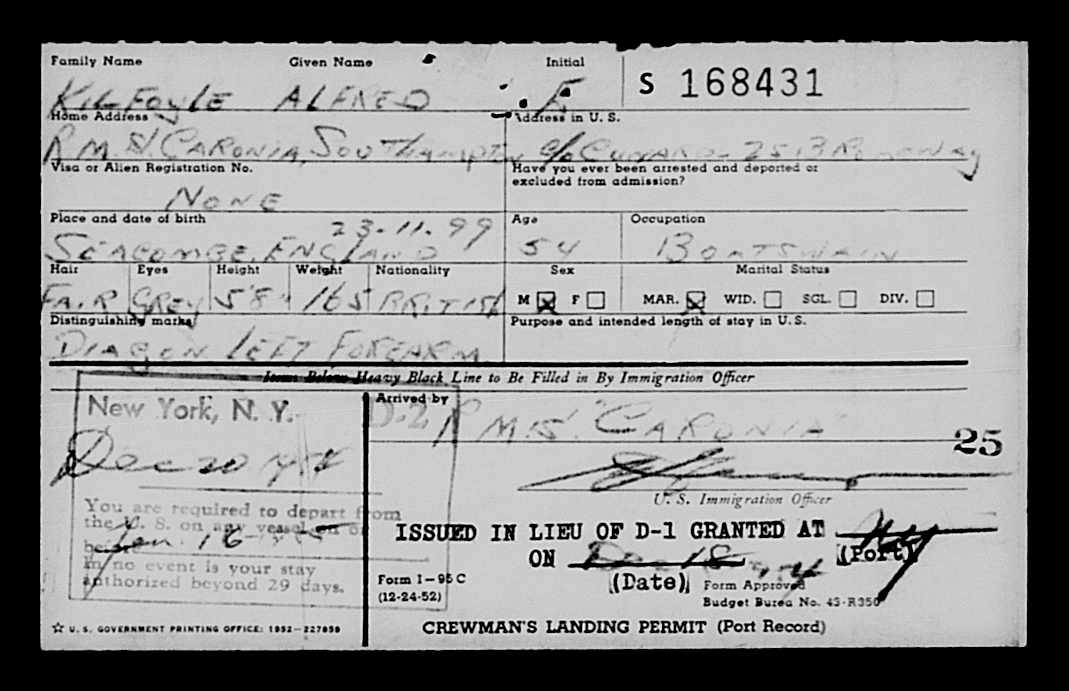 Family Name Given Name Initial
S 168431
KILFOYLE ALFRED F.
Home Address Address in U. S.
R.M.S. CARONIA, SOUTHampton c/o CUNARD - 25 BROADWAY
Visa or Alien Registration No. Have you ever been arrested and deported or excluded from admission?
NONE
Place and date of birth Age Occupation
23-11-99
SEACOMBE, ENGLAND 54 BOATSWAIN
Hair Eyes Height Weight Nationality Sex Marital Status
FAIR GREY 5'8" 165 BRITISH M ☒ F ☐ MAR. ☒ WID. ☐ SGL. ☐ DIV. ☐
Distinguishing marks Purpose and intended length of stay in U. S.
DRAGON LEFT FOREARM
Items Below Heavy Black Line to Be Filled in By Immigration Officer
New York, N. Y.
Dec 20 54
You are required to depart from
the U. S. on any vessel on or
before Jan. 16-55
in no event is your stay
authorized beyond 29 days.
☆ U. S. GOVERNMENT PRINTING OFFICE: 1952—227858
Arrived by
D-2 R.M.S. CARONIA
25
U. S. Immigration Officer
ISSUED IN LIEU OF D-1 GRANTED AT NY
ON Dec 18 54 (Port)
(Date)
Form I-95 C
(12-24-52)
Form Approved
Budget Bureau No. 43-R350
CREWMAN'S LANDING PERMIT (Port Record)